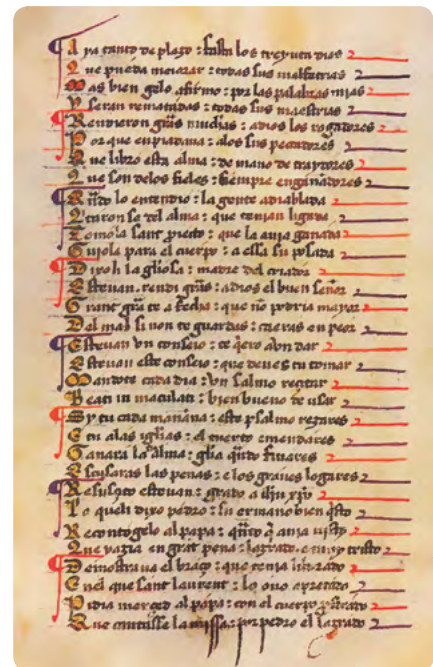 A ya tanto de plazo : fasta los treynta dias
Que pueda meiorar : todas sus malfetrias
Mas bien gelo afirmo : por las palabras mias
Y seran rematadas : todas sus maestrias
Rendieron gr̃as muchas : adios los rogadores
Por que enpiadaua : alos sus pecadores
Que libro esta alma : de mano de traydores
Que son delos fieles : siempre engañadores
Qũdo lo entendio : la gente adiablada
Quitaron se del alma : que tenian ligada
Tomola sant proiecto : que la auia ganada
Guiola para el cuerpo : a essa su posada
Dixoli la gl̃iosa : madre del criador
Esteuan. rendi gr̃as : adios el buen señor
Grant gr̃a te a fecha : que nõ podria mayor
Del mal si non te guardas : caeras en peor
Esteuan vn conseio : te q̃ero avn dar
Esteuan este conseio : que deues tu tomar
Mandote cada dia : vn salmo rezar
Beati in maculati : bien bueno de usar
Sy tu cada mañana : este psalmo rezares
E tu alas igl̃ias : el tuerto emendares
Ganara la alma : gl̃ia q̃ndo finares
Escusaras las penas : e los graues logares
Resusçito esteuan : grado a ihũ xp̃o
Lo quel dixo pedro : su ermano bien q̃sto
Recontogelo al papa : quãto q̃ auia uisto
Que yazia en grãt pena : lazrado e muy tristo
Demostraua el braço : que tenia liurado
Enel que sant laurent : lo ouo apretado
Pidia merçed al papa : con el cuerpo p̃strado
Que cantasse la missa : por pedro el lazrado